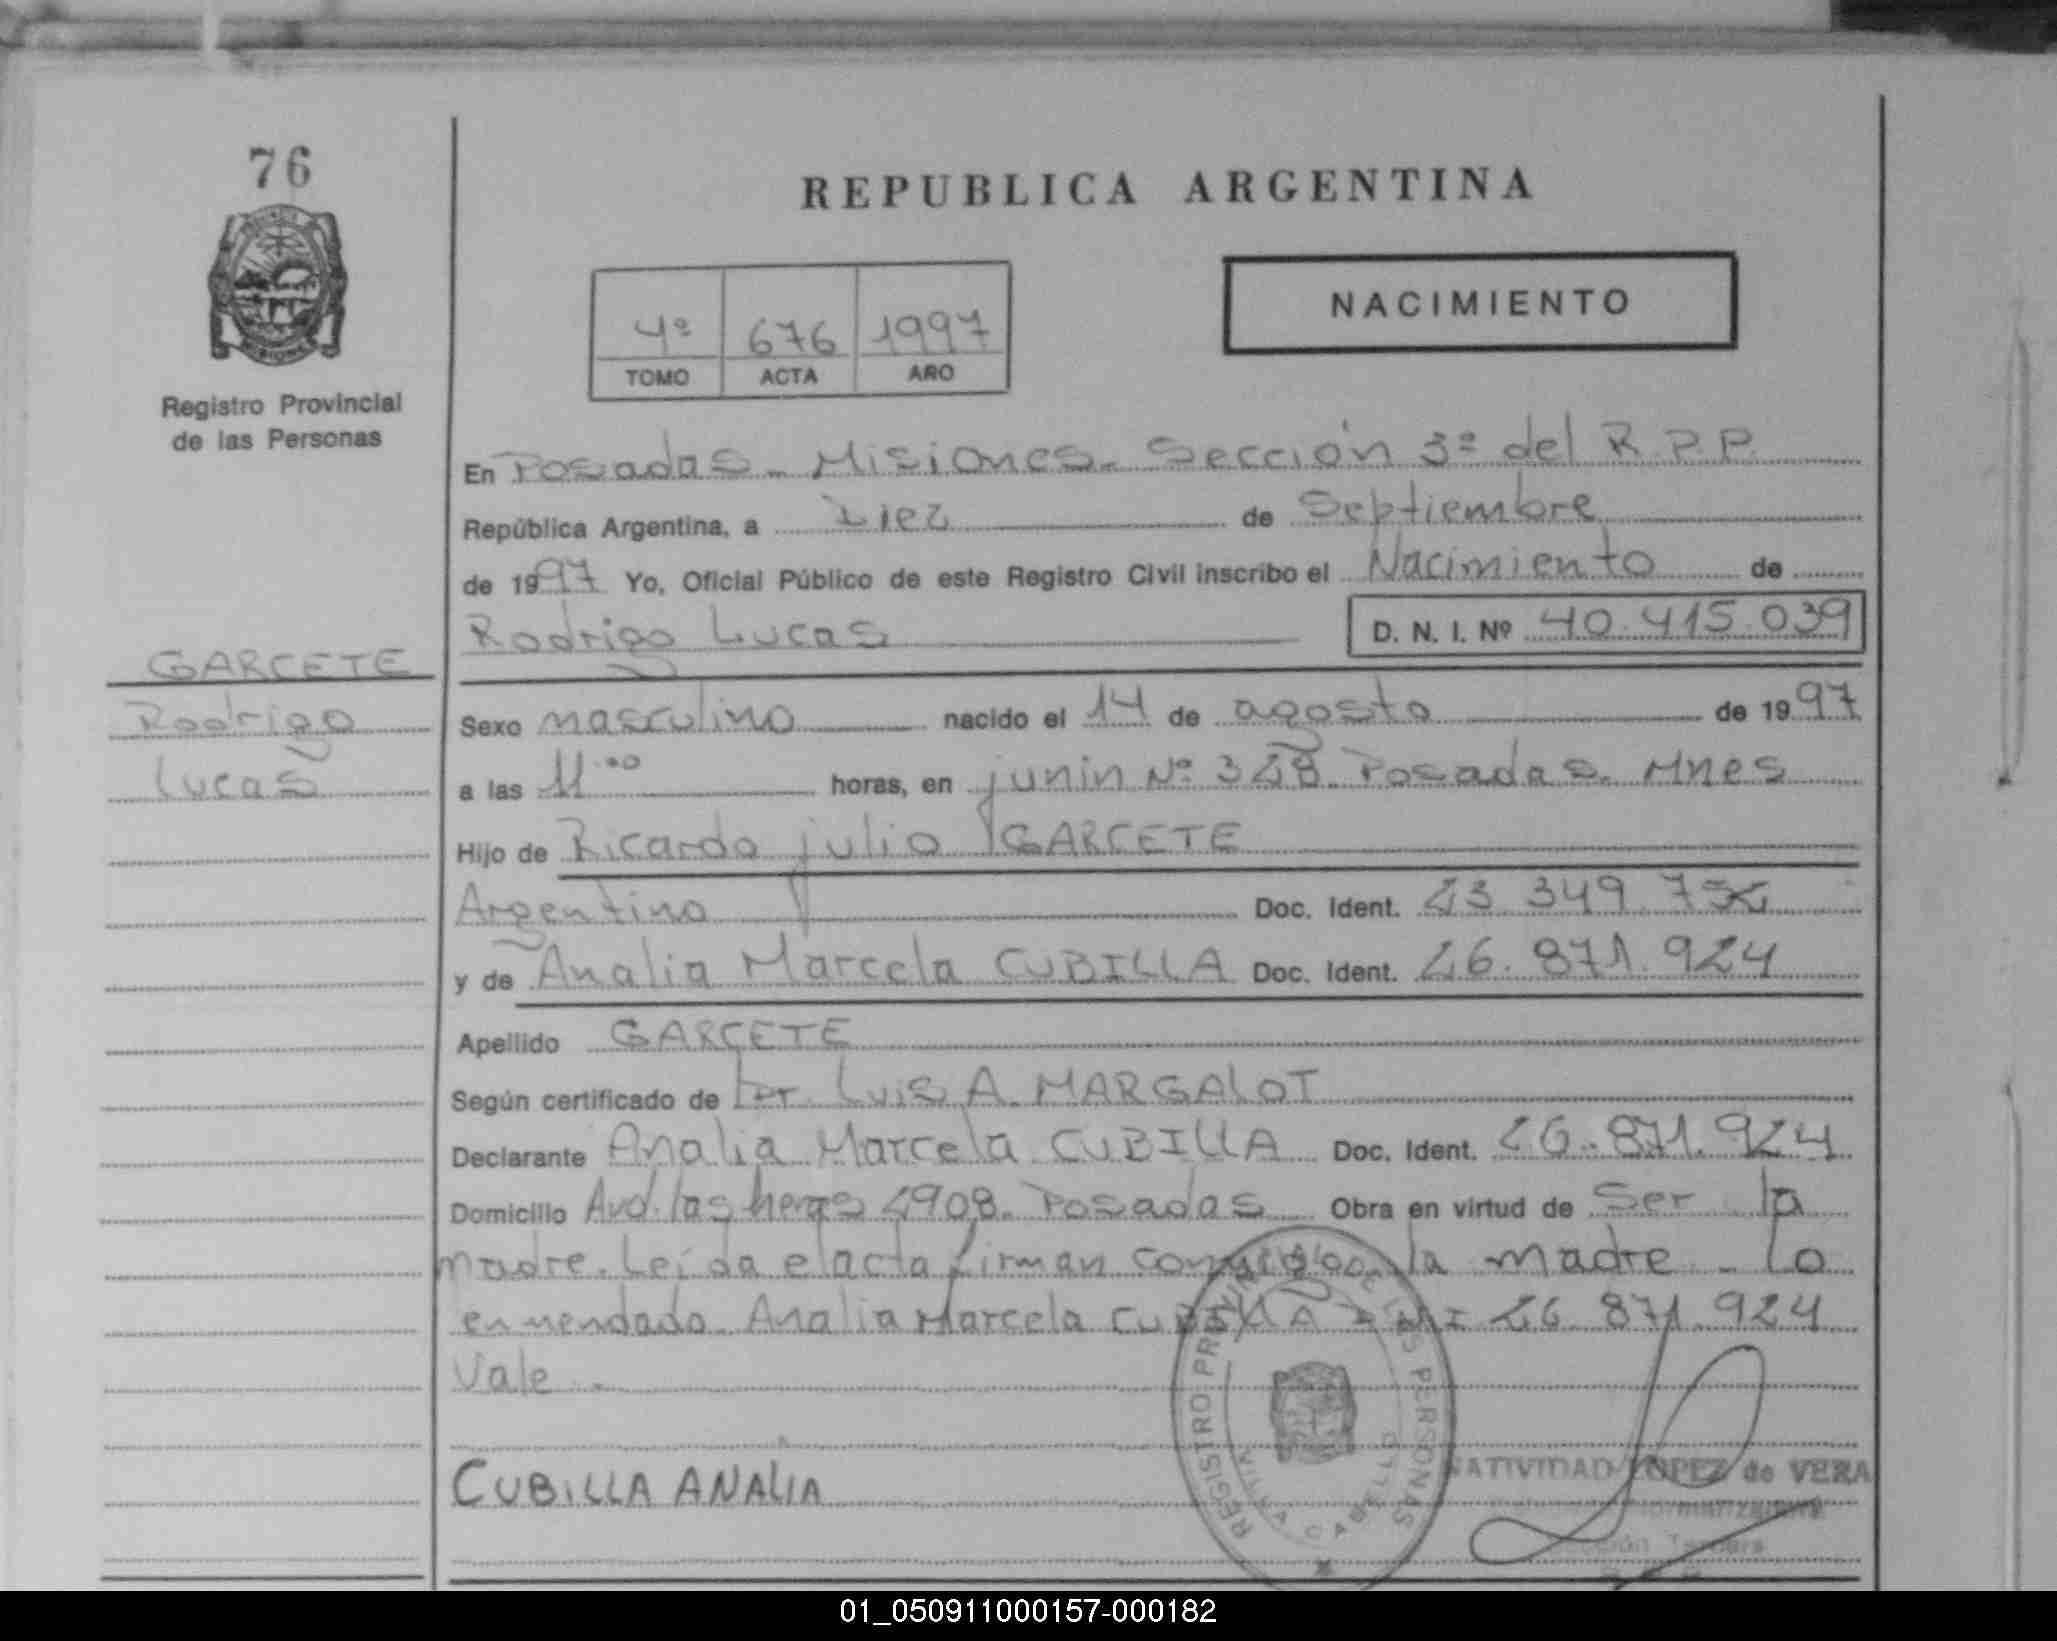 76
REPUBLICA ARGENTINA
NACIMIENTO
4º 676 1997
TOMO ACTA AÑO
Registro Provincial
de las Personas
En Posadas - Misiones - Sección 3ª del R.P.P.
República Argentina, a Diez de Septiembre
de 1997 Yo, Oficial Público de este Registro Civil inscribo el Nacimiento de
Rodrigo Lucas D. N. I. Nº 40.415.039
GARCETE
Rodrigo
Lucas
Sexo masculino nacido el 14 de agosto de 1997
a las 11.00 horas, en junin Nº 328. Posadas. Mnes
Hijo de Ricardo julio GARCETE
Argentino Doc. Ident. 23.349.
y de Analia Marcela CUBILLA Doc. Ident. 26.871.924
Apellido GARCETE
Según certificado de Dr. Luis A. MARGALOT
Declarante Analia Marcela CUBILLA Doc. Ident. 26.871.924
Domicilio Avd. las heras 2908. Posadas Obra en virtud de Ser la
madre. Leída el acta firman conmigo la madre - Lo
enmendado. Analia Marcela CUBILLA DNI 26.871.924
Vale.
CUBILLA ANALIA
REGISTRO PROVINCIAL DE LAS PERSONAS
NATIVIDAD LOPEZ de VERA
Sección Tercera
01_050911000157-000182